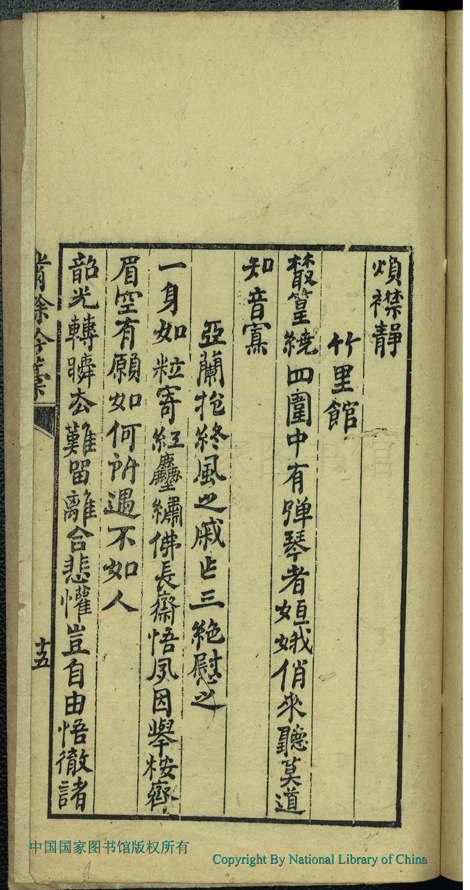 煩襟靜
竹里館
叢篁繞四圍中有彈琴者姮娥俏來聽莫道
知音寡
亞蘭抱終風之戚占三絕慰之
一身如粒寄紅塵繡佛長齋悟夙因舉桉齊
眉空有願如何所遇不如人
韶光轉瞬去難留離合悲懽豈自由悟徹諸
餘吟藳
十五
中国国家图书馆版权所有
Copyright By National Library of China